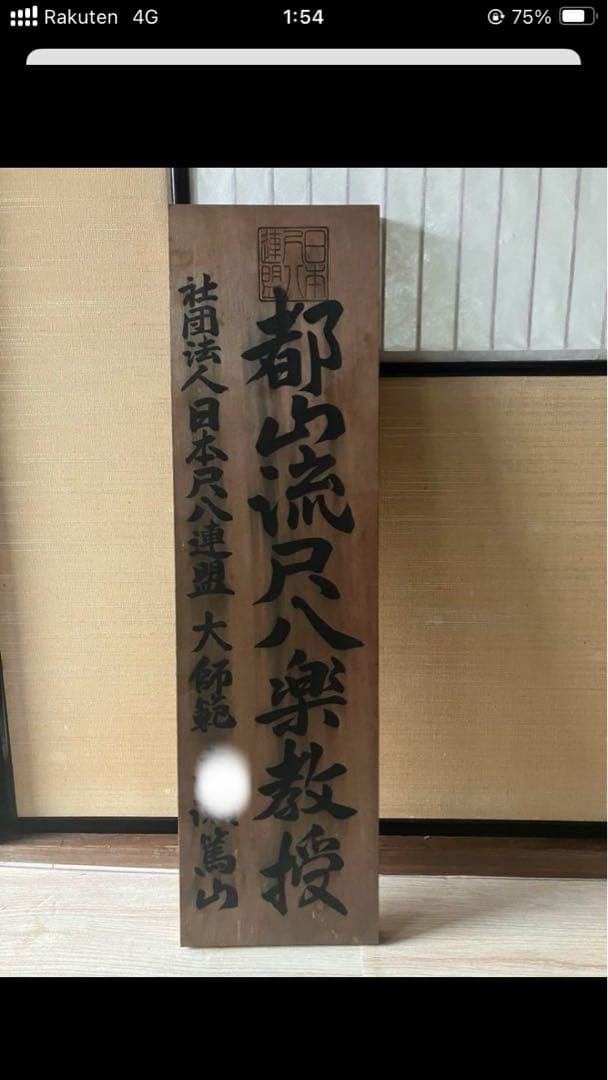 Rakuten 4G 1:54 75%
日本尺八連盟
都山流尺八楽教授
社団法人日本尺八連盟 大師範
篤山